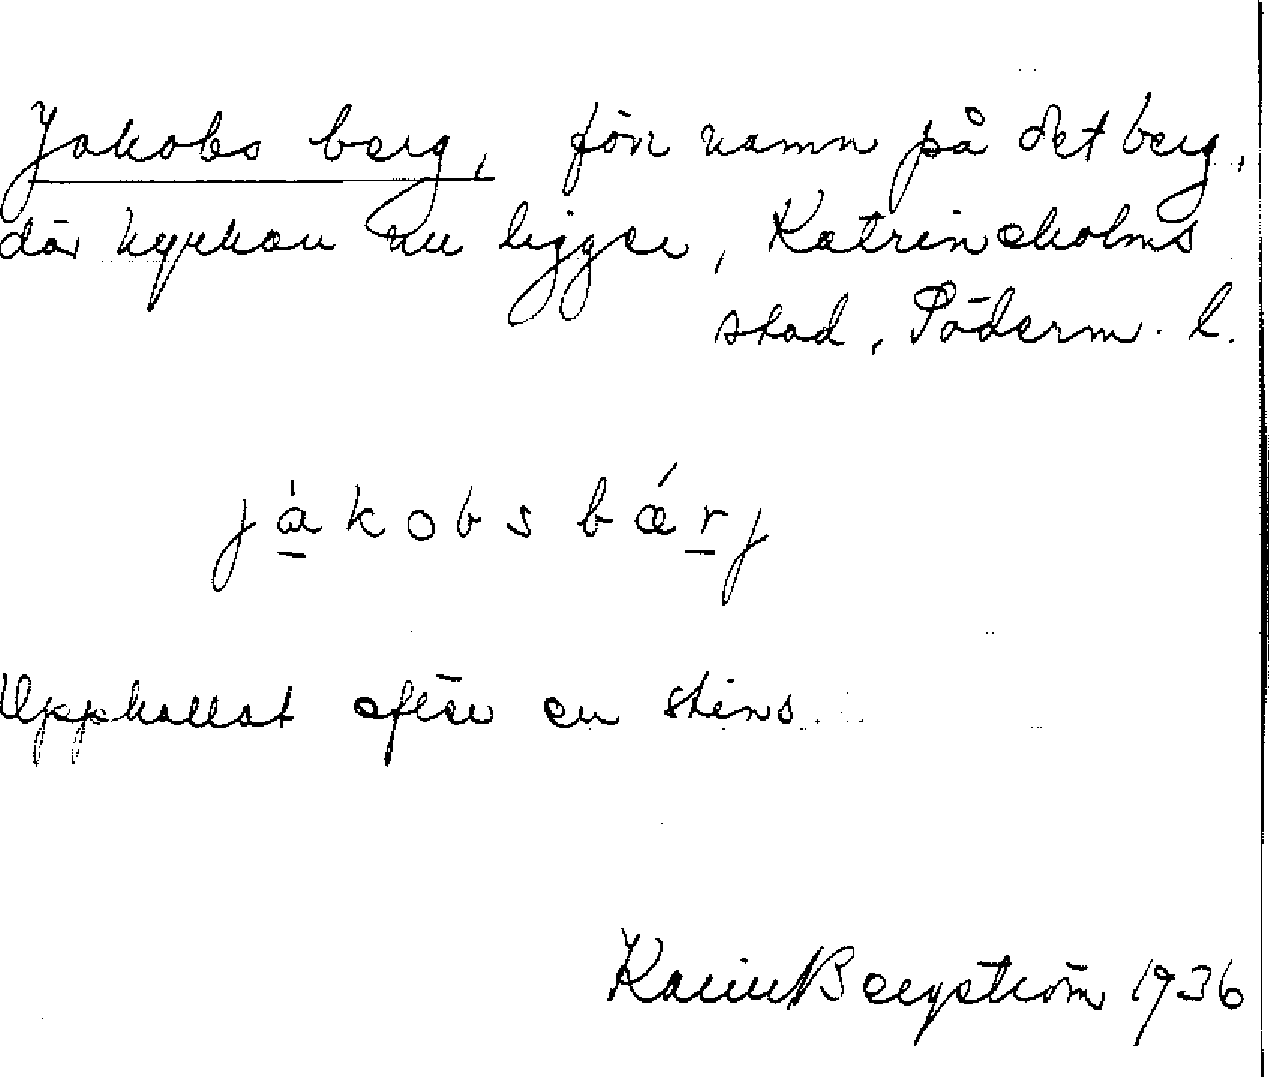 Jakobs berg, förr namn på det berg,
där kyrkan nu ligger, Katrineholms
stad, Söderm. l.
jákobsbǽrj
Uppkallat efter en stins.
Karin Bergström 1936